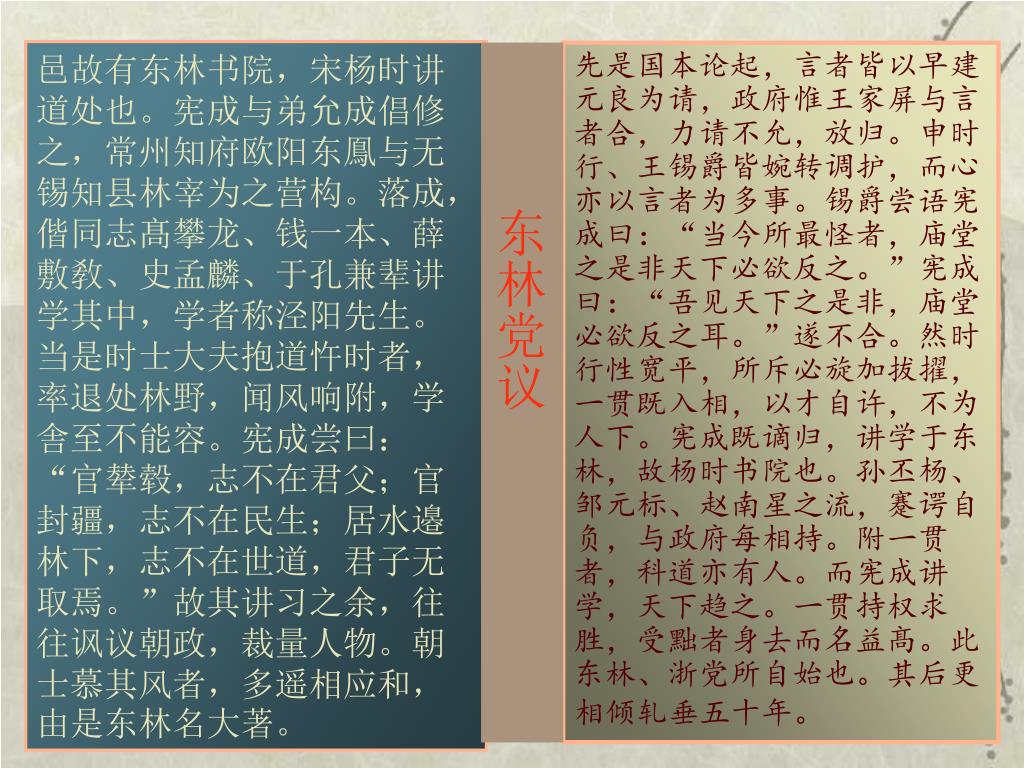 邑故有东林书院，宋杨时讲
道处也。宪成与弟允成倡修
之，常州知府欧阳东鳳与无
锡知县林宰为之营构。落成，
偕同志髙攀龙、钱一本、薛
敷敎、史孟麟、于孔兼辈讲
学其中，学者称泾阳先生。
当是时士大夫抱道忤时者，
率退处林野，闻风响附，学
舍至不能容。宪成尝曰：
“官辇毂，志不在君父；官
封疆，志不在民生；居水邉
林下，志不在世道，君子无
取焉。”故其讲习之余，往
往讽议朝政，裁量人物。朝
士慕其风者，多遥相应和，
由是东林名大著。
东林党议
先是国本论起，言者皆以早建
元良为请，政府惟王家屏与言
者合，力请不允，放归。申时
行、王锡爵皆婉转调护，而心
亦以言者为多事。锡爵尝语宪
成曰：“当今所最怪者，庙堂
之是非天下必欲反之。”宪成
曰：“吾见天下之是非，庙堂
必欲反之耳。”遂不合。然时
行性宽平，所斥必旋加拔擢，
一贯既入相，以才自许，不为
人下。宪成既谪归，讲学于东
林，故杨时书院也。孙丕杨、
邹元标、赵南星之流，蹇谔自
负，与政府每相持。附一贯
者，科道亦有人。而宪成讲
学，天下趋之。一贯持权求
胜，受黜者身去而名益髙。此
东林、浙党所自始也。其后更
相倾轧垂五十年。